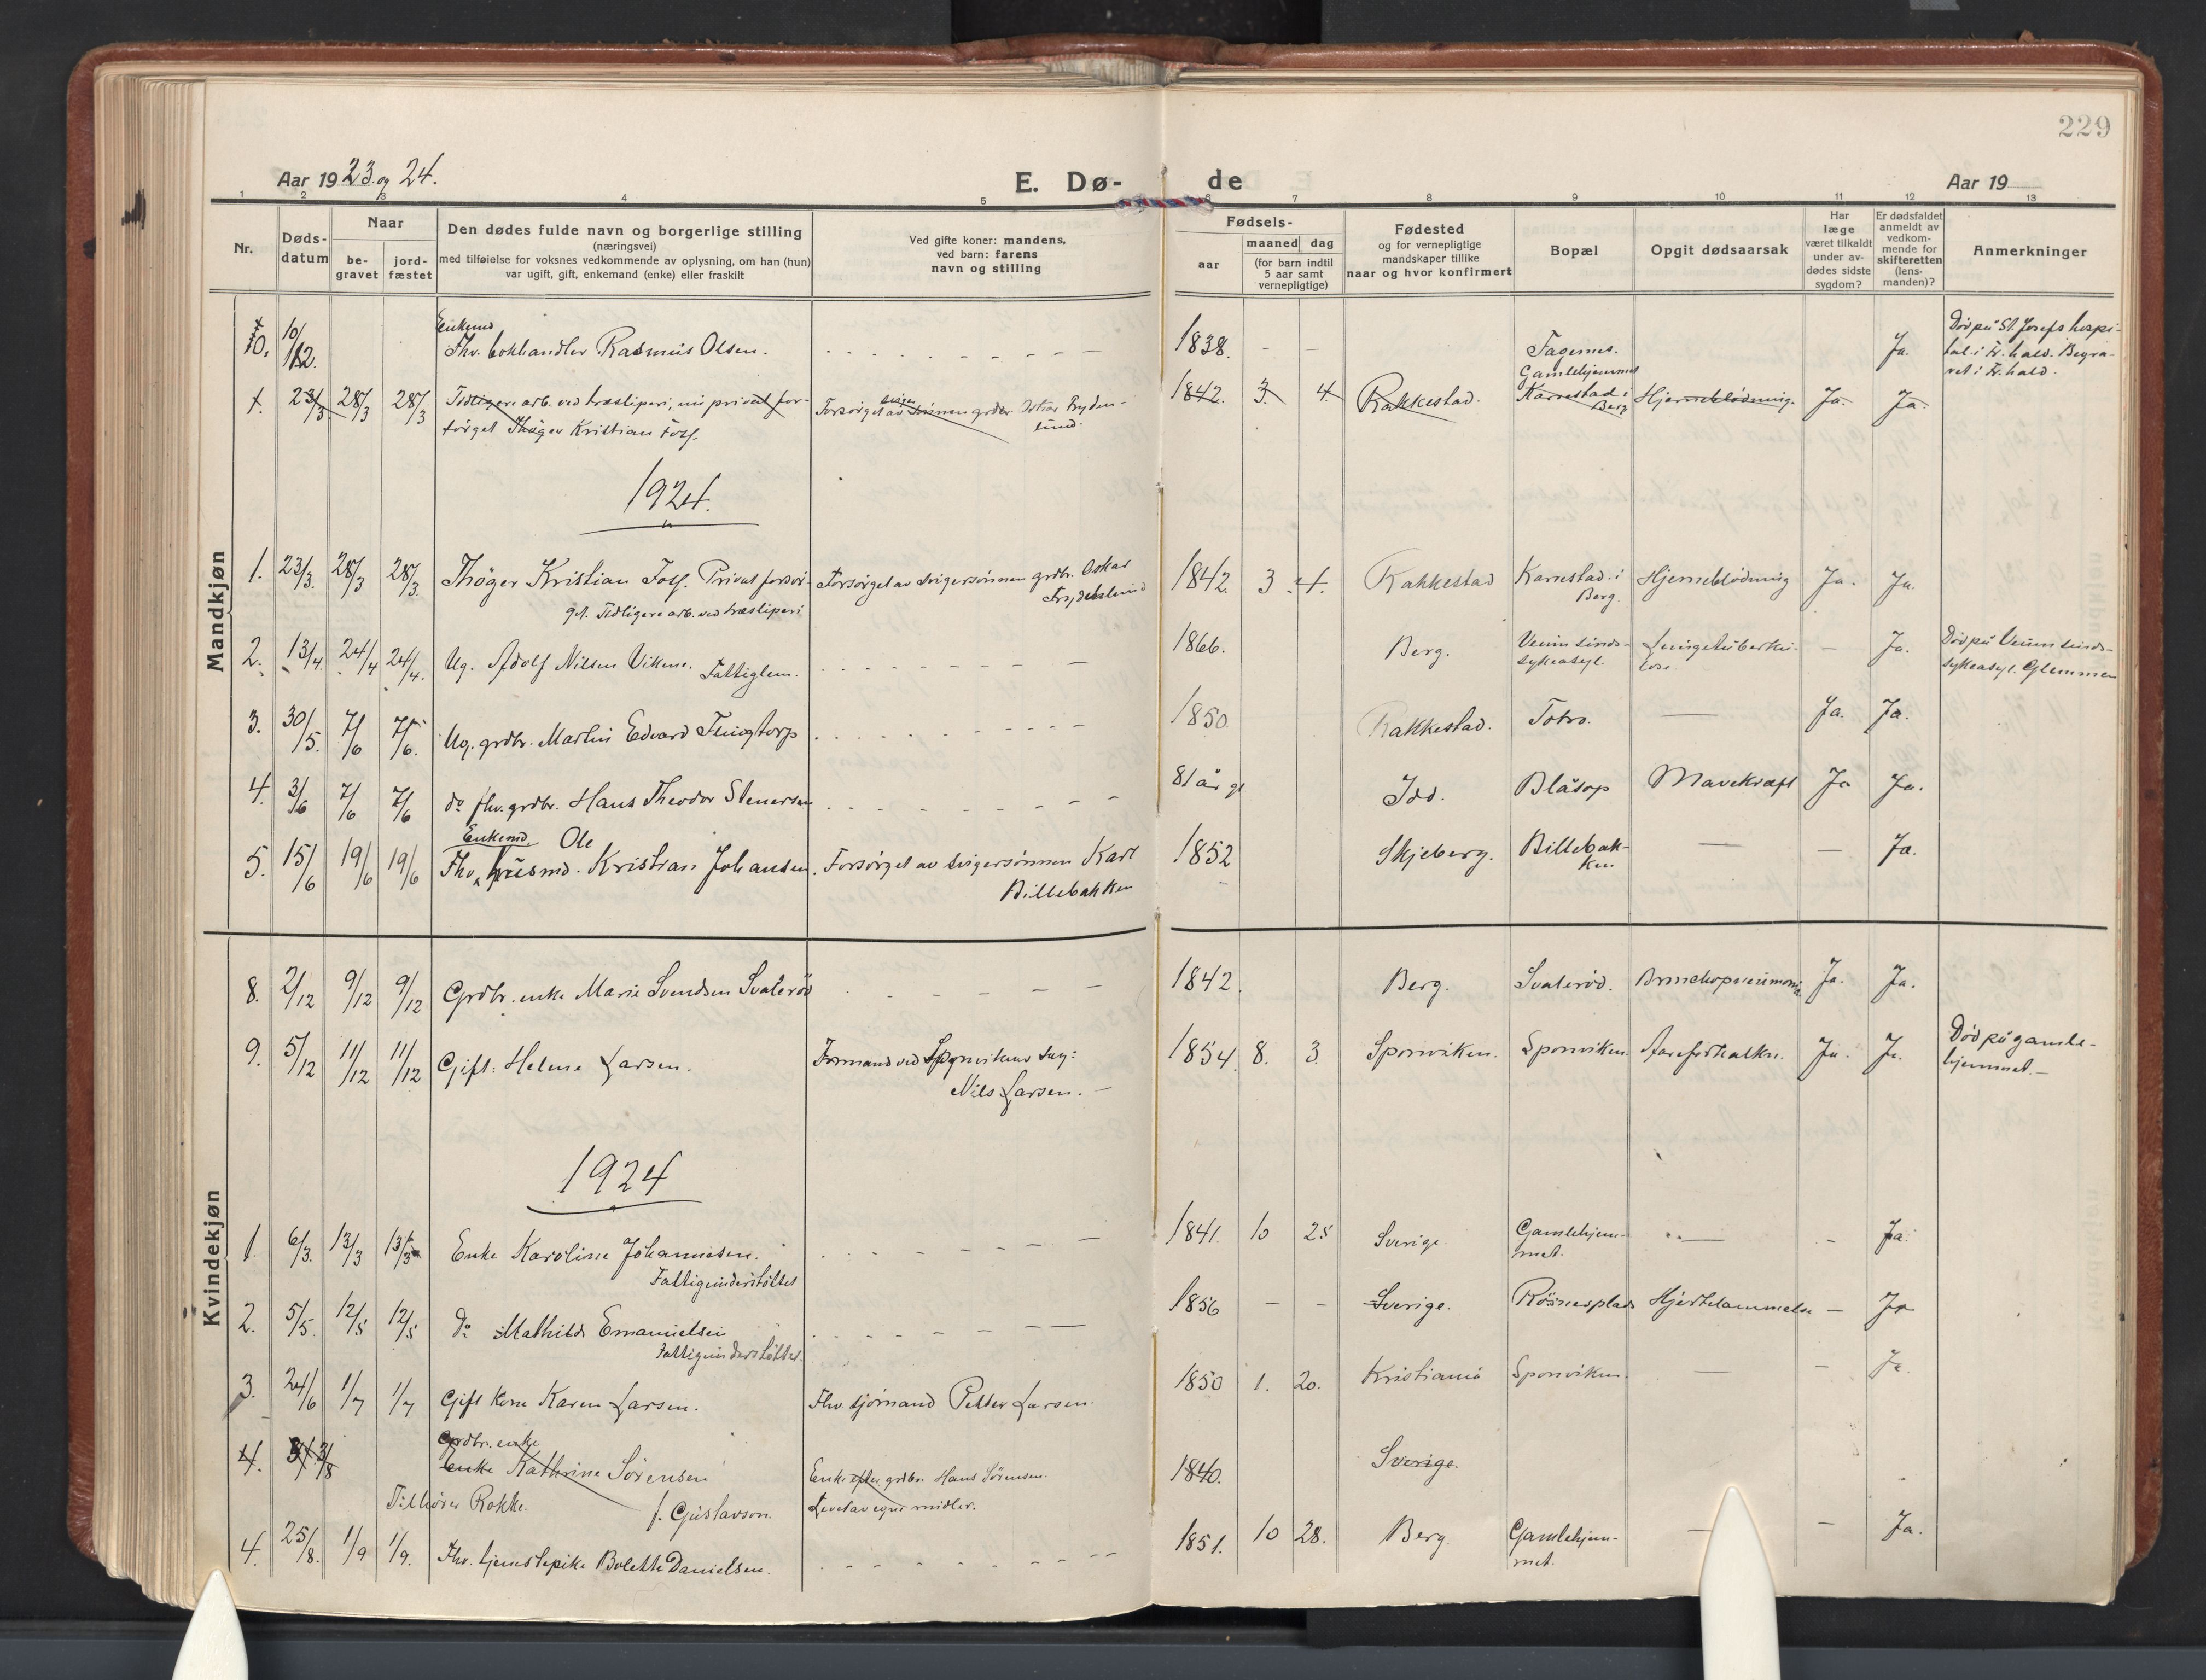 229
Aar 1923 og 24.
E. Dø- de
Aar 19
1 2 3 4 5 6 7 8 9 10 11 12 13
Nr.
Døds-
datum
Naar
be-
gravet
jord-
fæstet
Den dødes fulde navn og borgerlige stilling
(næringsvei)
med tilføielse for voksnes vedkommende av oplysning, om han (hun)
var ugift, gift, enkemand (enke) eller fraskilt
Ved gifte koner: mandens,
ved barn: farens
navn og stilling
Fødsels-
aar
maaned dag
(for barn indtil
5 aar samt
vernepligtige)
Fødested
og for vernepligtige
mandskaper tillike
naar og hvor konfirmert
Bopæl
Opgit dødsaarsak
Har
læge
været tilkaldt
under av-
dødes sidste
sygdom?
Er dødsfaldet
anmeldt av
vedkom-
mende for
skifteretten
(lens-
manden)?
Anmerkninger
Mandkjøn
Enkemd
10. 10/12. Fhv. bokhandler Rasmus Olsen. 1838. – – Fagernes. Ja. Død på St. Josefs hospi-
tal i Fr.hald. Begra-
vet i Fr.hald.
Gamlehjemmet
1. 23/3. 28/3 28/3 Tidligere arb. ved træsliperi, nu privat for- Forsörget av svigersönnen grdbr. Oskar Fryden- 1842. 3. 4. Rakkestad. Karrestad i Hjerneblödning. Ja. Ja.
sörget Thöger Kristian Foss. lund. Berg
1924.
1. 23/3. 28/3 28/3. Thöger Kristian Foss. Privat forsör- Forsörget av svigersönnen grdbr. Oskar 1842. 3 4. Rakkestad Karrestad i Hjerneblödning Ja. Ja.
get. Tidligere arb. ved træsliperi Frydenlund Berg.
2. 13/4. 24/4 24/4. Ug. Adolf Nilsen Vikene. Fattiglem. 1866. Berg. Veum sinds- Lungetuberku- – Ja. Död på Veum sinds-
sykeasyl. lose. sykeasyl. Glemmen
3. 30/5. 7/6 7/6. Ug. grdbr. Martin Edvard Tingtorp 1850 Rakkestad. Totro. — Ja. Ja.
4. 3/6 7/6 7/6 do fhv. grdbr. Hans Theodor Stenersen 81 år gl Idd. Blåsop Mavekræft Ja Ja.
Enkemd. Ole
5. 15/6 19/6 19/6 Fhv. husmd. Kristian Johansen. Forsörget av svigersönnen Karl 1852 Skjeberg. Billebak- — – Ja.
Billebakken ken.
8. 2/12 9/12 9/12 Grdbr. enke Marie Svendsen Svaleröd 1842. Berg. Svaleröd. Ja. Ja.
9. 5/12 11/12 11/12 Gift: Helene Larsen. Formand ved Sponvikens 1854. 8. 3 Sponviken. Sponviken. Aareforkalkn. Ja. Ja. Död på gamle-
Nils Larsen. – hjemmet.–
Kvindekjøn
1924
1. 6/3. 13/3 13/3 Enke Karoline Johannesen. 1841. 10 25 Sverige Gamlehjem- — – Ja.
Fattigunderstöttet met.
2. 5/5. 12/5 12/5 do Mathilde Emanuelsen 1856 – – Sverige. Rösnesplads Hjertelammelse – Ja
Fattigunderstöttet.
3. 24/6 1/7 1/7 Gift Kone Karen Larsen. Fhv. sjömand Petter Larsen. 1850 1. 20. Kristiania Sponviken. — – Ja.
Grdbr. enke
4. 3/8 Enke Kathrine Sörensen Enke efter grdbr. Hans Sörensen. 1840. Sverige.
Tilhörer Rokke. f. Gustavson. Levet av egne midler.
4. 25/8. 1/9 1/9. Fhv. tjenestepike Bolette Danielsen. 1851. 10 28. Berg. Gamlehjem- — – Ja.
met.